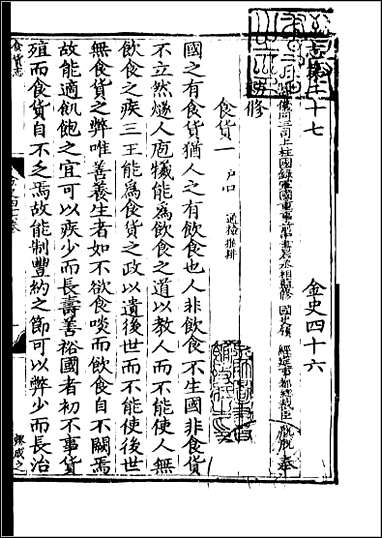 志第二十七　金史四十六
開府儀同三司上柱國錄軍國重事前中書右丞相監修國史領經筵事都總裁臣脫脫奉
修
食貨一　戶口　通檢推排
國之有食貨猶人之有飲食也人非飲食不生國非食貨
不立然燧人庖犧能爲飲食之道以教人而不能使人無
飲食之疾三王能爲食貨之政以遺後世而不能使後世
無食貨之弊唯善養生者如不欲食啖而飲食自不闕焉
故能適飢飽之宜可以疾少而長壽善裕國者初不事貨
殖而食貨自不乏焉故能制豐約之節可以弊少而長治
食貨志